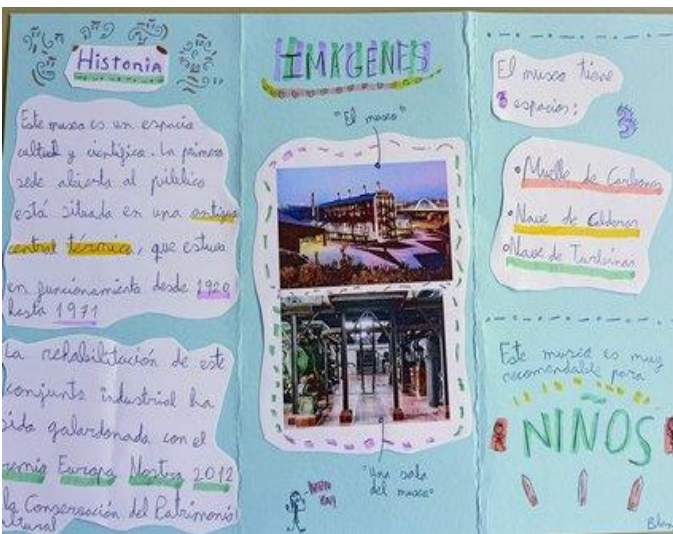 Historia
Este museo es un espacio
cultural y científico. La primera
sede abierta al público
está situada en una antigua
central térmica, que estuvo
en funcionamiento desde 1920
hasta 1971
La rehabilitación de este
conjunto industrial ha
sido galardonada con el
Premio Europa Nostra 2012
la Conservación del Patrimonio
Cultural
IMÁGENES
"El museo"
"Una sala
del museo"
El museo tiene
3 espacios:
3
•Muelle de Carbones
•Nave de Calderas
•Nave de Turbinas
Este museo es muy
recomendable para
NIÑOS